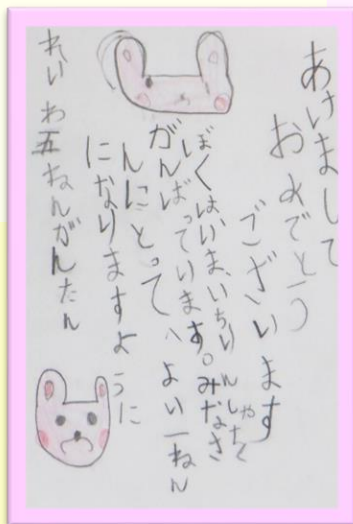 あけまして
おめでとう
ございます
ぼくは、いま、いちりんしゃ
がんばっています。みなさ
んにとって、よい一ねん
になりますように
れいわ五ねんがんたん